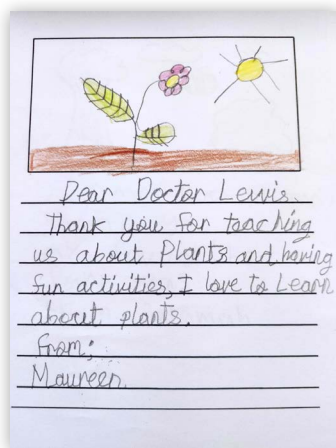 Dear Doctor Lewis.
Thank you for teaching
us about Plants and having
fun activities, I love to Learn
about plants.
From;
Maureen.